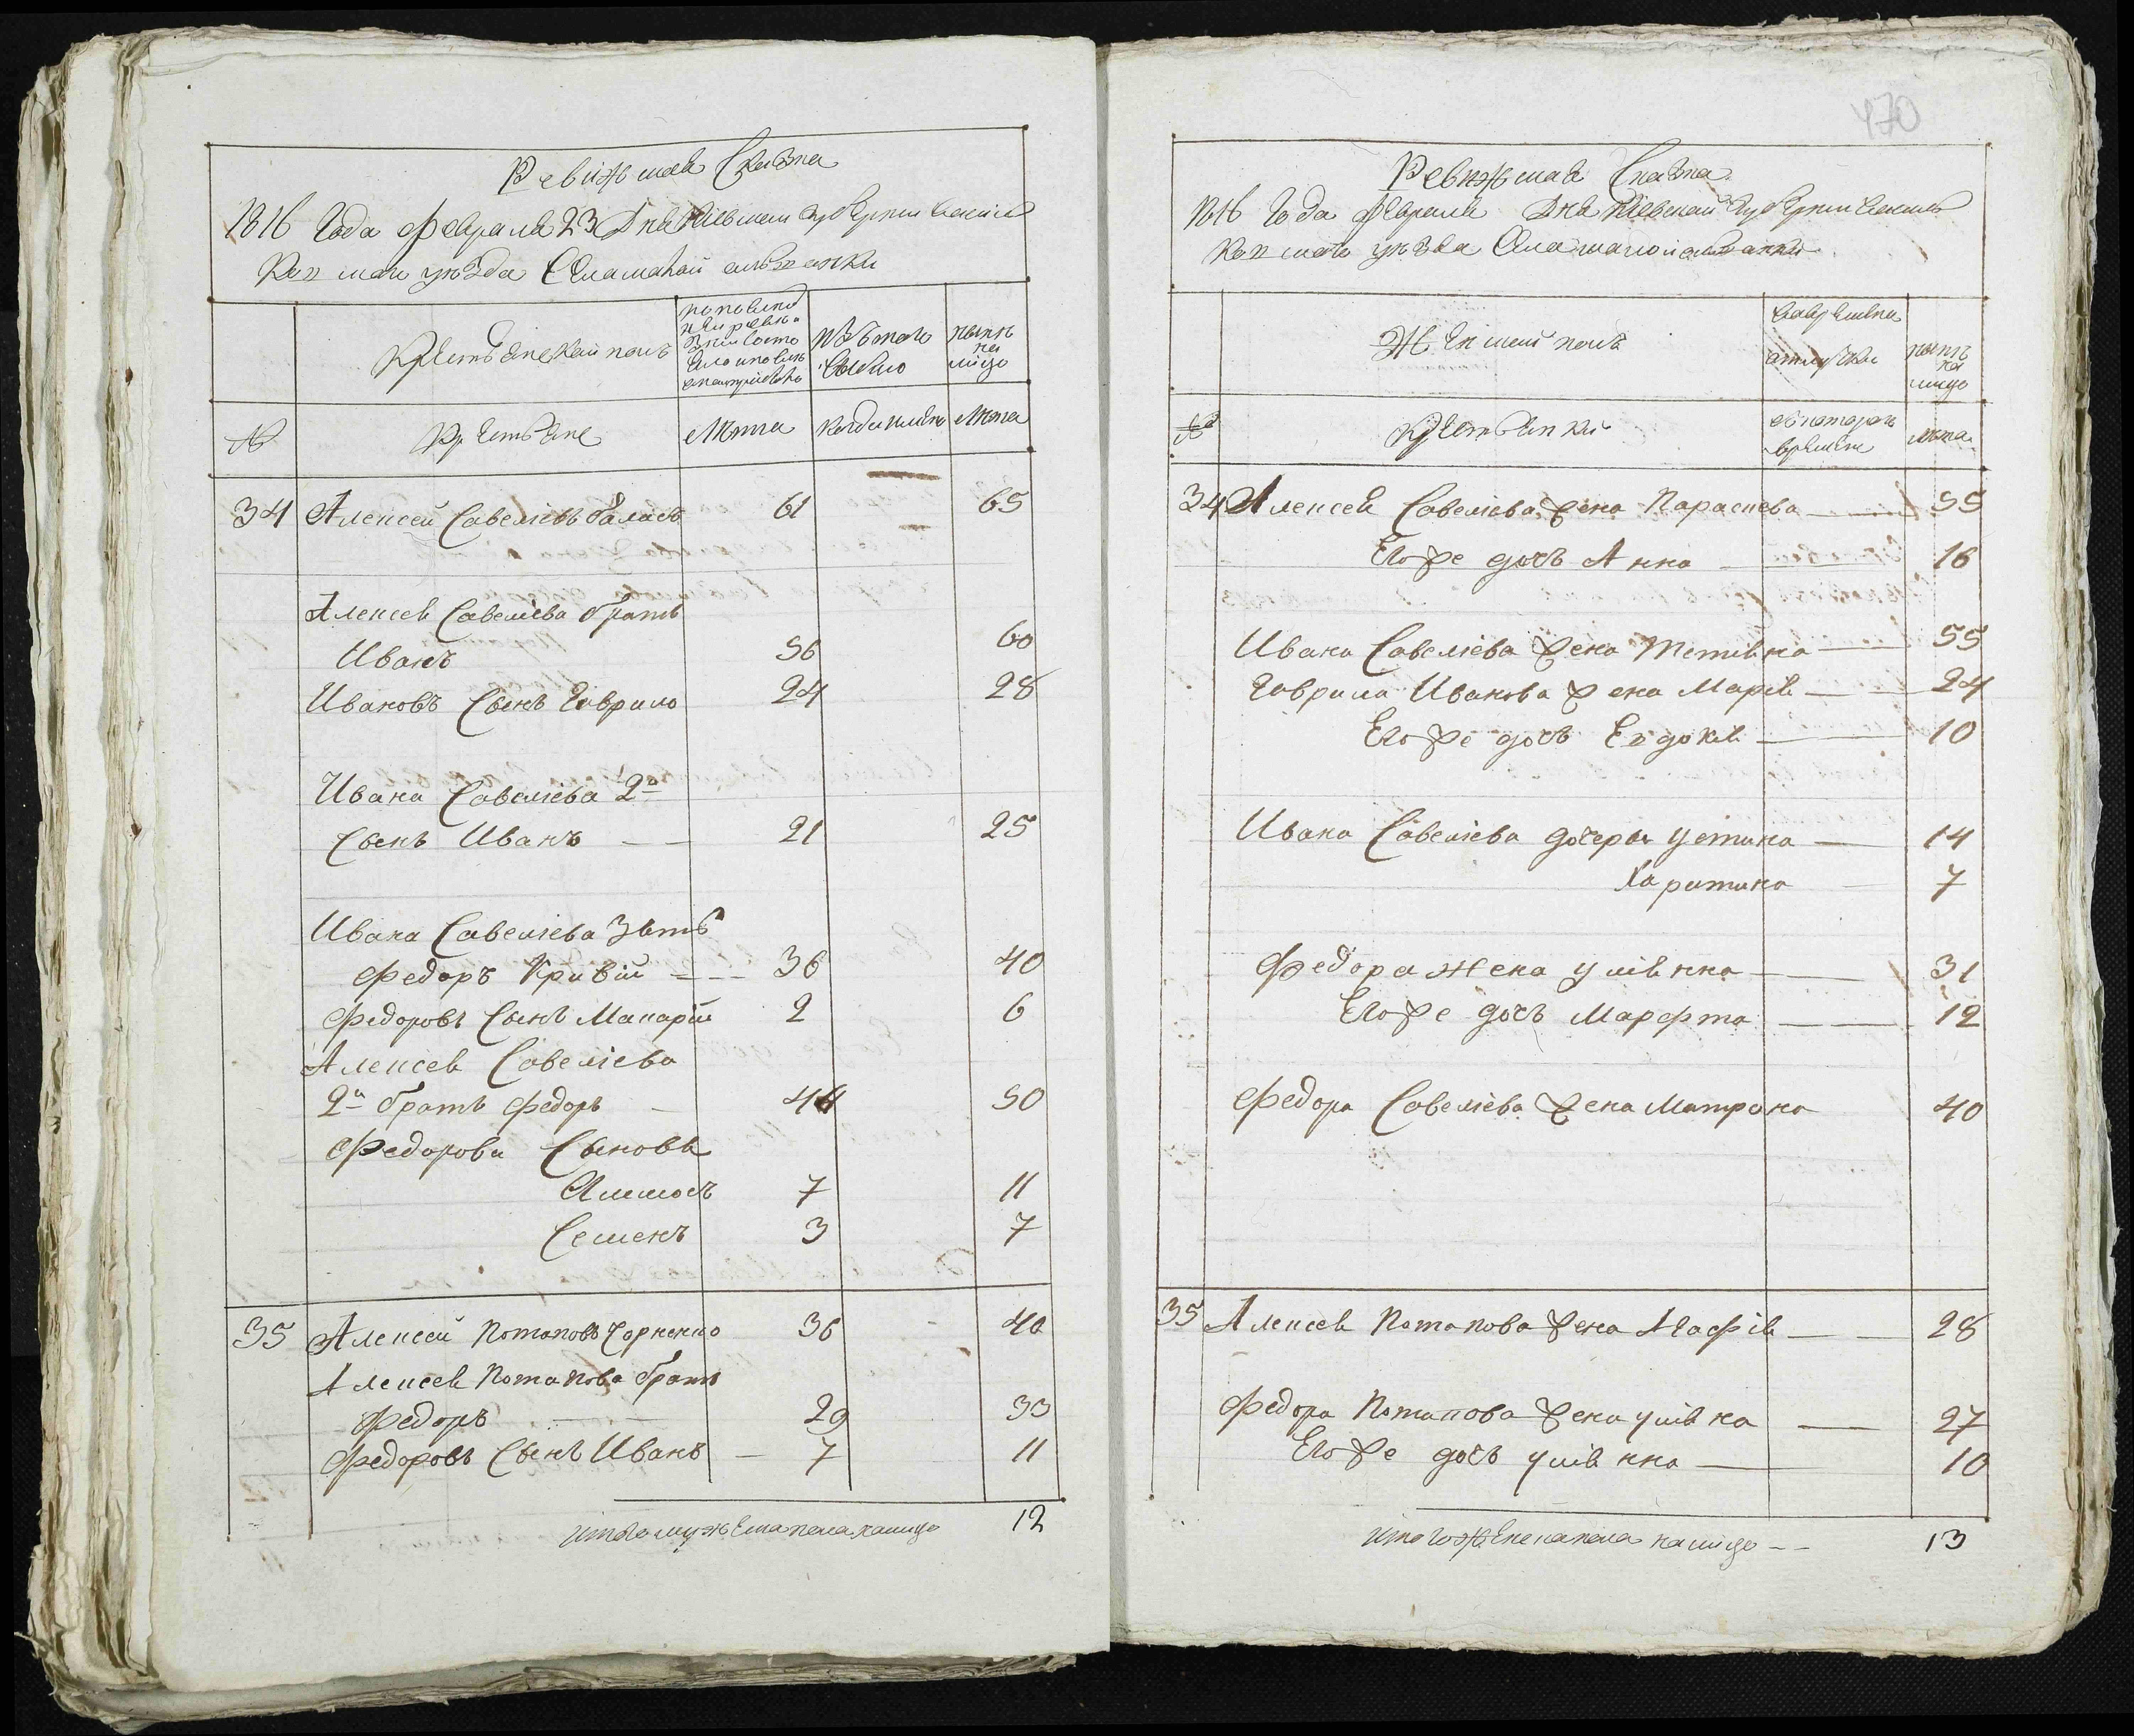 Ревижская Сказка
1816 Года Февраля 23 Дня Кіевской Губернии
уезда
Крестьянской полъ
изъ того выбыло
ныне на лицо
№
Крестьяне
Лѣта
когда именно
Лѣта
34 Алексей Савелієвъ Галасъ 61 65
Алексея Савелієва братъ
Иванъ 56 60
Ивановъ Сынъ Гаврило 24 28
Ивана Савелієва 2й
Сынъ Иванъ 21 25
Ивана Савелієва Зять
Федоръ Кривій 36 40
Федоровъ Сынъ Макарій 2 6
Алексея Савелієва
2й братъ Федоръ 50
Федорови Сыновя
7 11
Семенъ 3 7
35 Алексей Потаповъ Чорненко 36 40
Алексея Потапова братъ
Федоръ 29 33
Федоровъ Сынъ Иванъ 7 11
Итого мужеска пола налицо 12
470
Ревижская Сказка
1816 Года Февраля Дня Кіевской Губернии
уезда
Женской полъ
отлучки
ныне на лицо
№
Крестьянки
времени
лѣта
34 Алексея Савелієва жена Параскева 55
Егоже дочъ Анна 16
Ивана Савелієва жена Тетіяна 55
Гаврила Иванова жена Марія 24
Егоже дочъ Евдокія 10
Ивана Савелієва дочеры Устина 14
Харитина 7
Федора жена Уліянна 31
Егоже дочъ Марфта 12
Федора Савелієва жена Матрона 40
35 Алексея Потапова жена Агафія 28
Федора Потапова жена Уліяна 27
Егоже дочъ Уліянна 10
Итого женска пола налицо 13